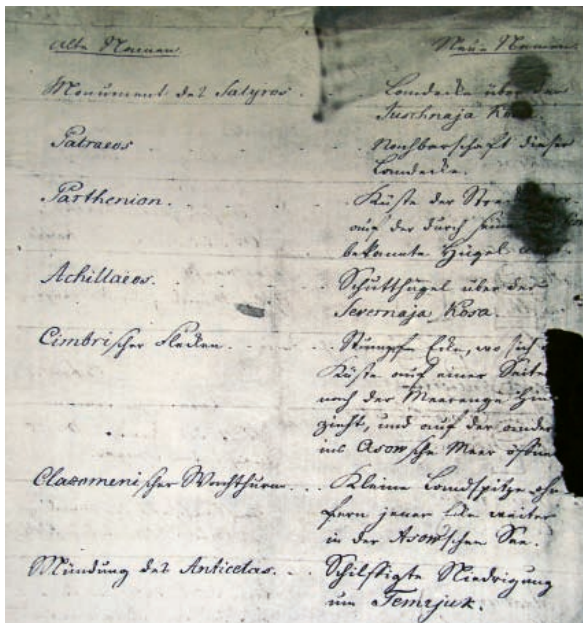 Alte Namen. Neue Namen
Monument des Satyros. Landecke über der
Juschnaja Kosa.
Patraeos Nachbarschaft dieser
Landecke.
Parthenion. Küste der
auf der durch
bekannte Hügel
Achillaeos. Schutthügel über der
Severnaja Kosa.
Cimbrischer Flecken. Stumpfe Ecke, wo sich
Küste auf einer Seite
nach der Meerenge hin
zieht, und auf der andern
ins Asow'sche Meer öffnet
Clazomenischer Wachthurm. Kleine Landspitze
fern jener Ecke weiter
in der Asow'schen See.
Mündung des Anticetas. Schilfigte Niedrigung
um Temrjuk.